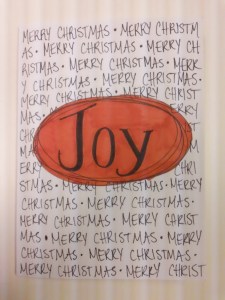 MERRY CHRISTMAS • MERRY CHRISTM
AS • MERRY CHRISTMAS • MERRY CH
RISTMAS • MERRY CHRISTMAS • MERR
Y CHRISTMAS • MERRY CHRISTMAS •
MERRY CHRISTMAS • MERRY CHRIST
Joy
ERRY
CHRI
STMAS • MERRY CHRISTMAS • MERRY
CHRISTMAS • MERRY CHRISTMAS •
MERRY CHRISTMAS • MERRY CHRIST
MAS • MERRY CHRISTMAS • MERRY
CHRISTMAS • MERRY CHRISTMAS •
MERRY CHRISTMAS • MERRY CHRIST